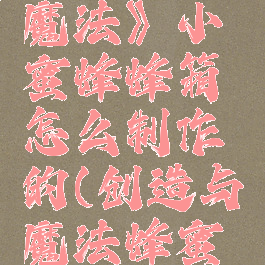 魔法》小
蜜蜂蜂箱
怎么制作
的(创造与
魔法蜂蜜